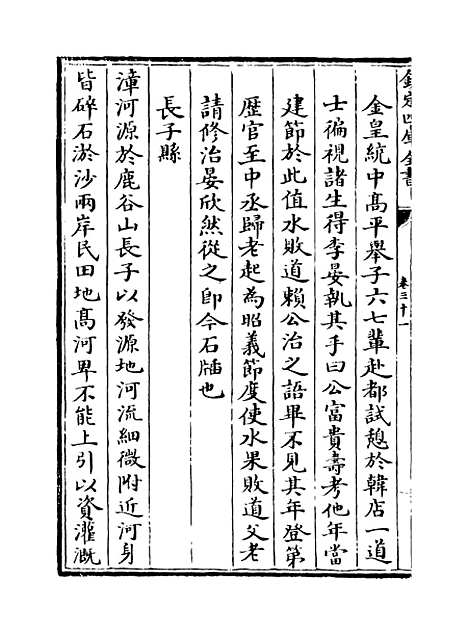 欽定四庫全書
卷三十一
金皇統中髙平舉子六七輩赴都試憩於韓店一道
士徧視諸生得李晏執其手曰公富貴壽考他年當
建節於此值水敗道賴公治之語畢不見其年登第
歴官至中丞歸老起為昭義節度使水果敗道父老
請修治晏欣然從之即今石㮇也
長子縣
漳河源於鹿谷山長子以發源地河流細微附近河身
皆碎石淤沙兩岸民田地髙河畀不能上引以資灌溉